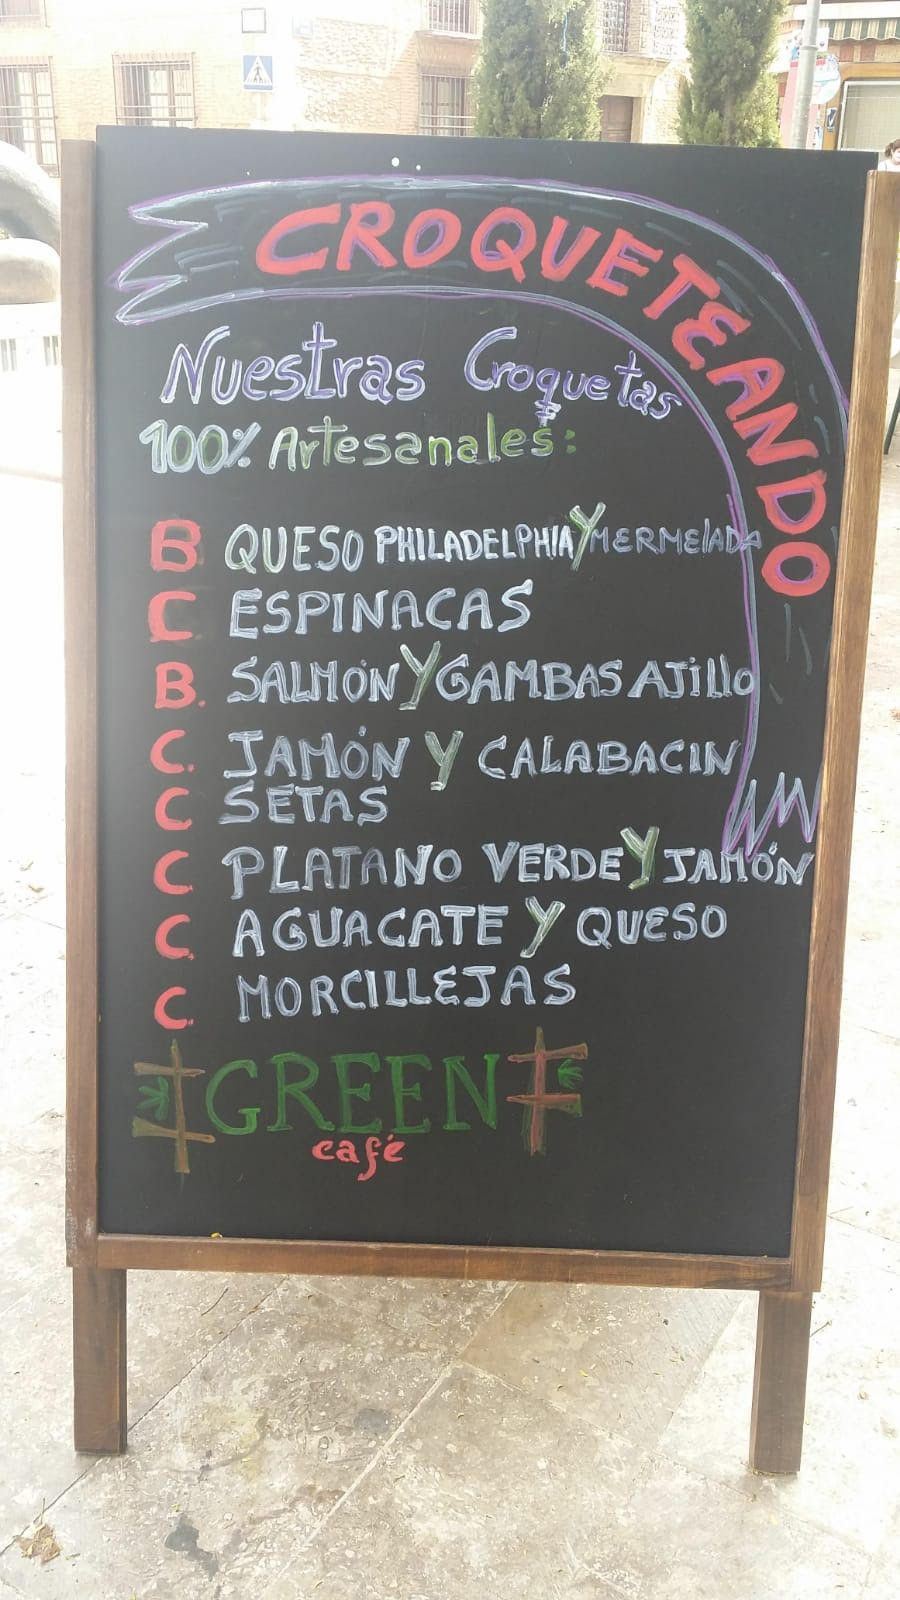 CROQUETEANDO
Nuestras Croquetas
100% Artesanales:
B QUESO PHILADELPHIA Y MERMELADA
C ESPINACAS
B. SALMÓN Y GAMBAS AJILLO
C. JAMÓN Y CALABACIN
C SETAS
C PLATANO VERDE Y JAMÓN
C. AGUACATE Y QUESO
C. MORCILLEJAS
GREEN
café